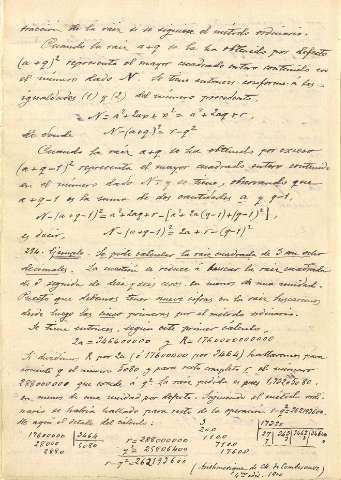 tracción de la raíz si se siguiese el método ordinario.
Cuando la raíz a+q se la ha obtenido por defecto
(a+q)² representa el mayor cuadrado entero contenido en
el número dado N. Se tiene entonces conforme á las
igualdades (1) y (2) del número precedente,
N = a²+2ax+x² = a²+2aq+r,
de donde N-(a+q)² = r-q²
Cuando la raíz a+q se ha obtenido por exceso
(a+q-1)² representa el mayor cuadrado entero contenido
en el número dado N; y se tiene, observando que
a+q-1 es la suma de dos cantidades a y q-1,
N-(a+q-1)² = a²+2aq+r-[a²+2a(q-1)+(q-1)²],
es decir, N-(a+q-1)² = 2a+r-(q-1)²
Ejemplo. Se pide calcular la raíz cuadrada de 3 con ocho
decimales. La cuestión se reduce á buscar la raíz cuadrada
de 3 seguida de diez y seis ceros, en menos de una unidad.
Puesto que debemos tener nueve cifras en la raíz buscamos
desde luego las cinco primeras por el método ordinario.
Se tiene entonces, según este primer cálculo,
2a = 346400000 y R = 1760000000000
Si dividimos R por 2a (ó 17600000 por 3464) hallaremos para
cociente q el número 5080 y para resto completo r el número
288000000 que excede á q². La raíz pedida es pues 1,73205080.
en menos de una unidad por defecto. Siguiendo el método ordi-
nario se habría hallado para resto de la operación r-q² = 262193600.
He aquí el detalle del cálculo:
17600000 | 3464
28000 5080
2880
r = 288000000
q² = 25806400
r-q² = 262193600
3 | 17320
200
1100
7100
17600